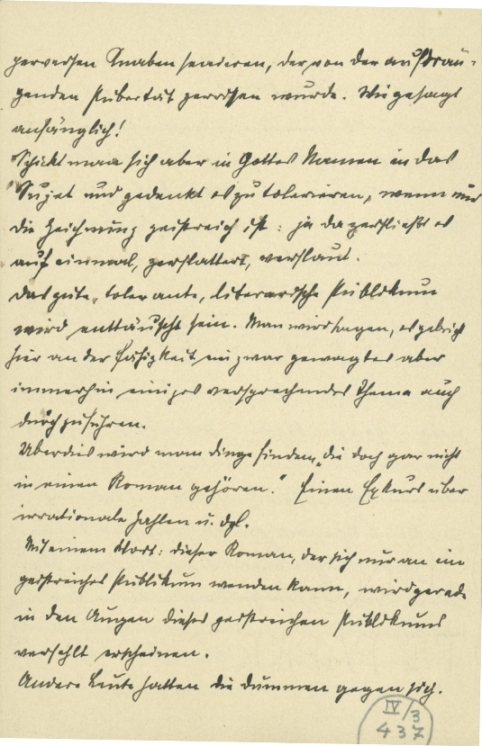 perversen Knaben handeren, der von der aufdrän-
genden Pubertät gerissen wurde. Wie gesagt
anfänglich!
Schickt man sich aber in Gottes Namen in das
Sujet und gedenkt es zu tolerieren, wenn nur
die Zeichnung geistreich ist: ja da zerfließt es
auf einmal, zerflattert, verflaut.
Das gute, tolerante, literarische Publikum
wird enttäuscht sein. Man wird sagen, es gebrich
hier an der Fähigkeit ein zwar gewagtes aber
immerhin einiges versprechendes Thema auch
durchzuführen.
Überdies wird man dinge finden, „die doch gar nicht
in einen Roman gehören." Einen Exkurs über
irrationale Zahlen u. dgl.
Mit einem Wort: dieser Roman, der sich nur an ein
geistreiches Publikum wenden kann, wird gerade
in den Augen dieses geistreichen Publikums
verfehlt erscheinen.
Andere Leute hatten die dummen gegen sich.
IV/3
437